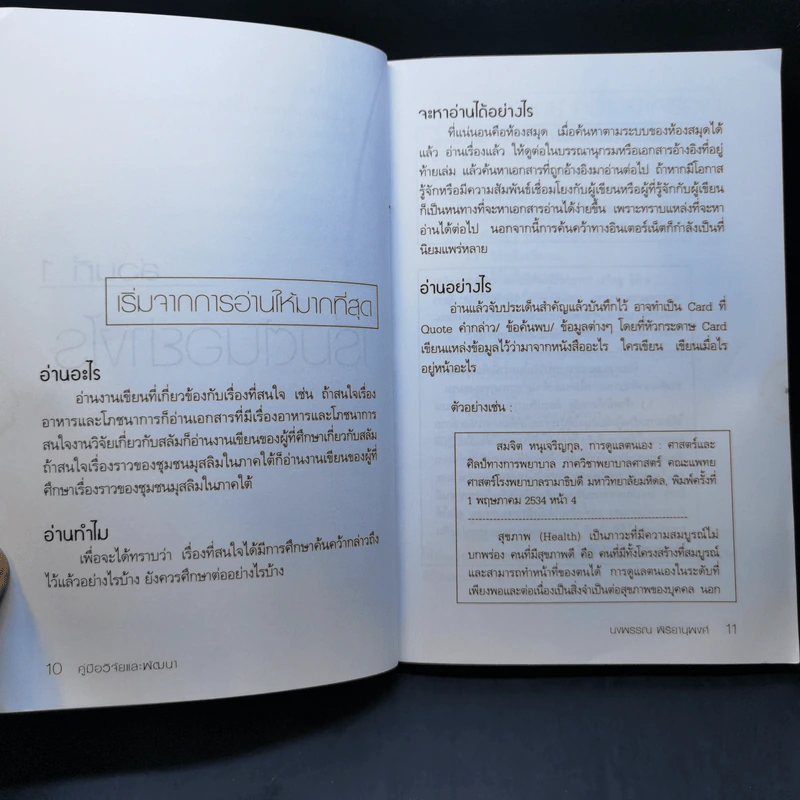 เริ่มจากการอ่านให้มากที่สุด
อ่านอะไร
อ่านงานเขียนที่เกี่ยวข้องกับเรื่องที่สนใจ เช่น ถ้าสนใจเรื่อง
อาหารและโภชนาการก็อ่านเอกสารที่มีเรื่องอาหารและโภชนาการ
สนใจงานวิจัยเกี่ยวกับสลัมก็อ่านงานเขียนของผู้ที่ศึกษาเกี่ยวกับสลัม
ถ้าสนใจเรื่องราวของชุมชนมุสลิมในภาคใต้ก็อ่านงานเขียนของผู้ที่
ศึกษาเรื่องราวของชุมชนมุสลิมในภาคใต้
อ่านทำไม
เพื่อจะได้ทราบว่า เรื่องที่สนใจได้มีการศึกษาค้นคว้ากล่าวถึง
ไว้แล้วอย่างไรบ้าง ยังควรศึกษาต่ออย่างไรบ้าง
10 คู่มือวิจัยและพัฒนา
จะหาอ่านได้อย่างไร
ที่แน่นอนคือห้องสมุด เมื่อค้นหาตามระบบของห้องสมุดได้
แล้ว อ่านเรื่องแล้ว ให้ดูต่อในบรรณานุกรมหรือเอกสารอ้างอิงที่อยู่
ท้ายเล่ม แล้วค้นหาเอกสารที่ถูกอ้างอิงมาอ่านต่อไป ถ้าหากมีโอกาส
รู้จักหรือมีความสัมพันธ์เชื่อมโยงกับผู้เขียนหรือผู้ที่รู้จักกับผู้เขียน
ก็เป็นหนทางที่จะหาเอกสารอ่านได้ง่ายขึ้น เพราะทราบแหล่งที่จะหา
อ่านได้ต่อไป นอกจากนี้การค้นคว้าทางอินเตอร์เน็ตก็กำลังเป็นที่
นิยมแพร่หลาย
อ่านอย่างไร
อ่านแล้วจับประเด็นสำคัญแล้วบันทึกไว้ อาจทำเป็น Card ที่
Quote คำกล่าว/ ข้อค้นพบ/ ข้อมูลต่างๆ โดยที่หัวกระดาษ Card
เขียนแหล่งข้อมูลไว้ว่ามาจากหนังสืออะไร ใครเขียน เขียนเมื่อไร
อยู่หน้าอะไร
ตัวอย่างเช่น :
สมจิต หนุเจริญกุล, การดูแลตนเอง : ศาสตร์และ
ศิลป์ทางการพยาบาล ภาควิชาพยาบาลศาสตร์ คณะแพทย
ศาสตร์โรงพยาบาลรามาธิบดี มหาวิทยาลัยมหิดล, พิมพ์ครั้งที่
1 พฤษภาคม 2534 หน้า 4
สุขภาพ (Health) เป็นภาวะที่มีความสมบูรณ์ไม่
บกพร่อง คนที่มีสุขภาพดี คือ คนที่มีทั้งโครงสร้างที่สมบูรณ์
และสามารถทำหน้าที่ของตนได้ การดูแลตนเองในระดับที่
เพียงพอและต่อเนื่องเป็นสิ่งจำเป็นต่อสุขภาพของบุคคล นอก
นงพรรณ พิริยานุพงศ์ 11